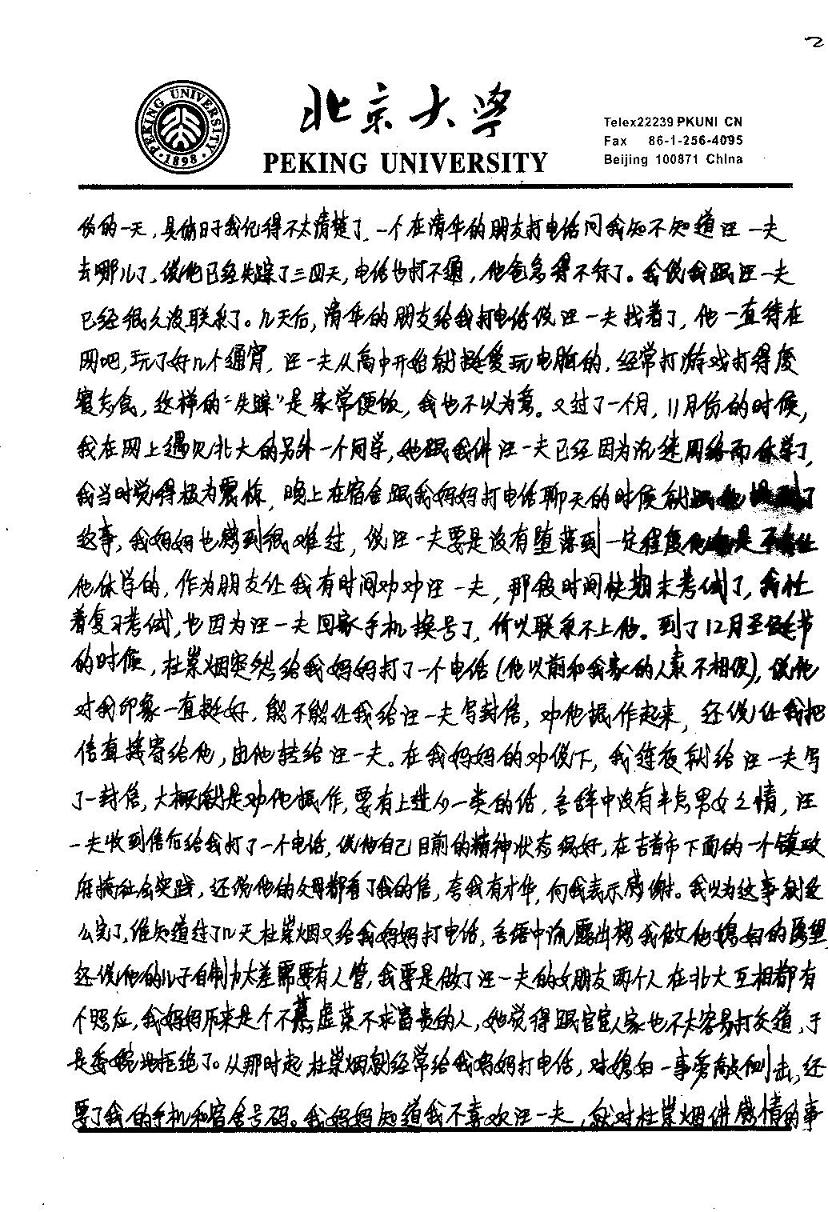 2
PEKING UNIVERSITY
1898
北京大学
PEKING UNIVERSITY
Telex22239 PKUNI CN
Fax 86-1-256-4095
Beijing 100871 China
份的一天,具体日子我记得不太清楚了,一个在清华的朋友打电话问我知不知道汪一夫
去哪儿了,说他已经失踪了三四天,电话也打不通,他爸急得不行了。我说我跟汪一夫
已经很久没联系了。几天后,清华的朋友给我打电话说汪一夫找着了,他一直待在
网吧,玩了好几个通宵,汪一夫从高中开始就挺爱玩电脑的,经常打游戏打得废
寝忘食,这样的“失踪”是家常便饭,我也不以为意。又过了一个月,11月份的时候,
我在网上遇见北大的另外一个同学,她跟我讲汪一夫已经因为沉迷网络而休学了,
我当时觉得极为震惊,晚上在宿舍跟我妈妈打电话聊天的时候就跟她提到了
这事,我妈妈也感到很难过,说汪一夫要是没有堕落到一定程度他是不会让
他休学的,作为朋友让我有时间劝劝汪一夫,那段时间快期末考试了,我忙
着复习考试,也因为汪一夫回家手机换号了,所以联系不上他。到了12月圣诞节
的时候,杜崇烟突然给我妈妈打了一个电话(他以前和我家的人素不相识),说他
对我印象一直挺好,能不能让我给汪一夫写封信,劝他振作起来,还说让我把
信直接寄给他,由他转给汪一夫。在我妈妈的劝说下,我连夜就给汪一夫写
了一封信,大概就是劝他振作,要有上进心一类的话,言辞中没有半点男女之情,汪
一夫收到信后给我打了一个电话,说他自己目前的精神状态很好,在吉首市下面的一个镇政
府搞社会实践,还说他的父母都看了我的信,夸我有才华,向我表示感谢。我以为这事就这
么完了,谁知道过了几天杜崇烟又给我妈妈打电话,言语中流露出想我做他媳妇的愿望
还说他的儿子自制力太差需要有人管,我要是做了汪一夫的女朋友两个人在北大互相都有
个照应,我妈妈历来是个不慕虚荣不求富贵的人,她觉得跟官宦人家也不太容易打交道,于
是委婉地拒绝了。从那时起杜崇烟就经常给我妈妈打电话,对媳妇一事旁敲侧击,还
要了我的手机和宿舍号码。我妈妈知道我不喜欢汪一夫,就对杜崇烟讲感情的事